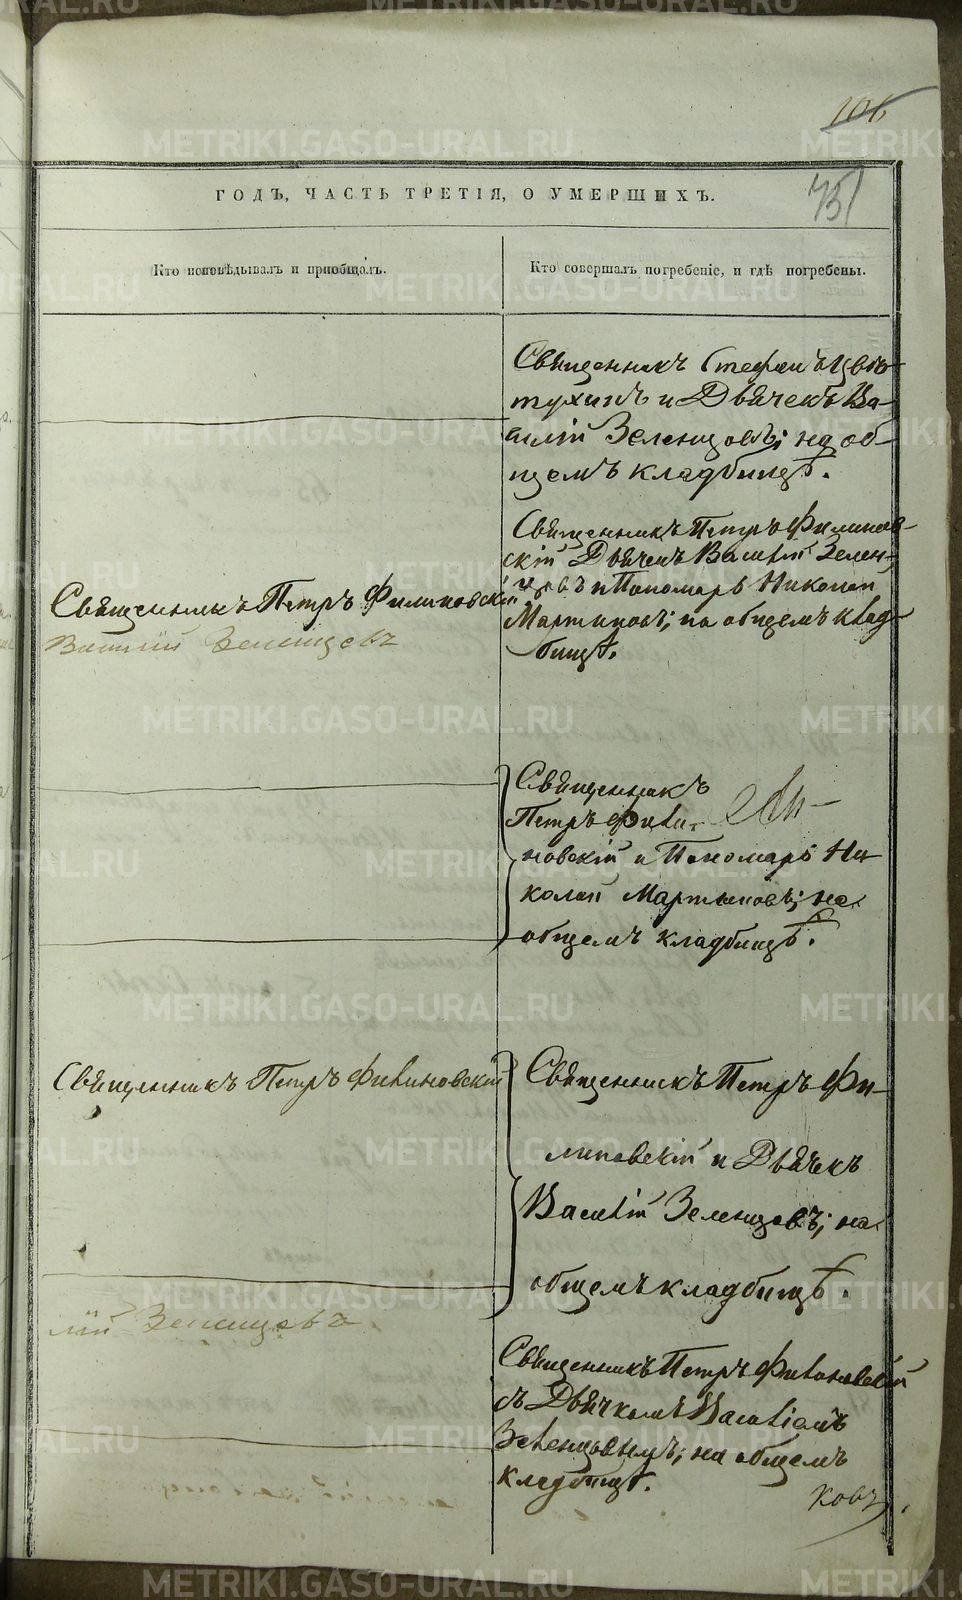 106
75
ГОДЪ, ЧАСТЬ ТРЕТІЯ, О УМЕРШИХЪ.
Кто исповѣдывалъ и пріобщалъ.
Кто совершалъ погребеніе, и гдѣ погребены.
Священникъ Стефанъ Цвѣ-
тухинъ и Дьячекъ Ва-
силій Зеленцовъ; на об-
щемъ кладбищѣ.
Священникъ Петръ Филинов-
скій Дьячекъ Василій Зелен-
цовъ и Пономарь Николай
Мартиновъ; на общемъ клад-
бищѣ.
Священникъ Петръ Филиновскій
Василій Зеленцовъ
Священникъ
Петръ Фили-
новскій и Пономарь Ни-
колай Мартыновъ; на
общемъ кладбищѣ.
Священникъ Петръ Филиновскій
Священникъ Петръ Фи-
линовскій и Дьячекъ
Василій Зеленцовъ; на
общемъ кладбищѣ.
лій Зеленцовъ
Священникъ Петръ Филиновскій
съ Дьячкомъ Василіемъ
Зеленцовымъ; на общемъ
кладбищѣ.
ковъ
METRIKI.GASO-URAL.RU